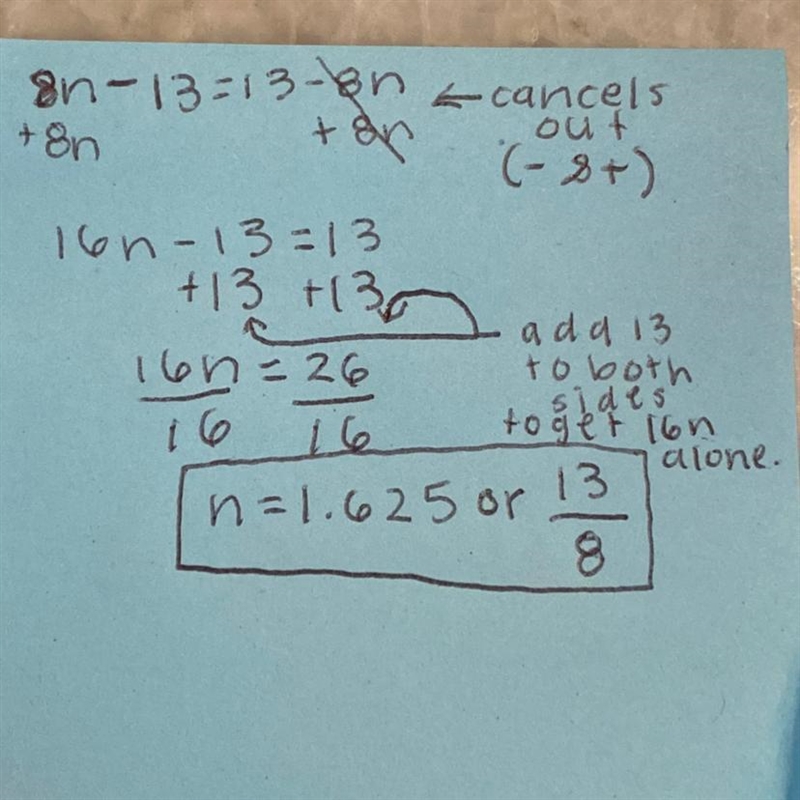 8n - 13 = 13 - 8n ← cancels
+8n + 8n out
(- & +)
16n - 13 = 13
+13 +13
add 13
16n = 26 to both
16 16 sides
to get 16n
alone.
n = 1.625 or 13/8